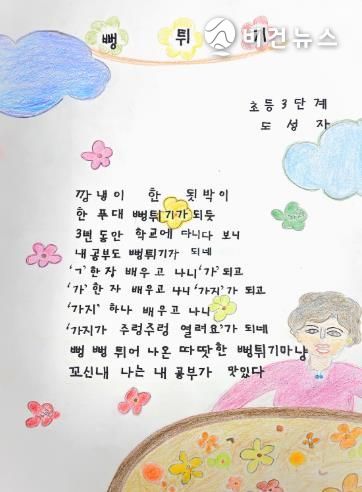 비건뉴스
뻥 튀 기
초등 3 단계
도 성 자
깡냉이 한 됫박이
한 푸대 뻥튀기가 되듯
3년 동안 학교에 다니다 보니
내 공부도 뻥튀기가 되네
'ㄱ' 한 자 배우고 나니 '가' 되고
'가' 한 자 배우고 나니 '가지'가 되고
'가지' 하나 배우고 나니
'가지가 주렁주렁 열려요'가 되네
뻥 뻥 튀어 나온 따땃한 뻥튀기마냥
꼬신내 나는 내 공부가 맛있다